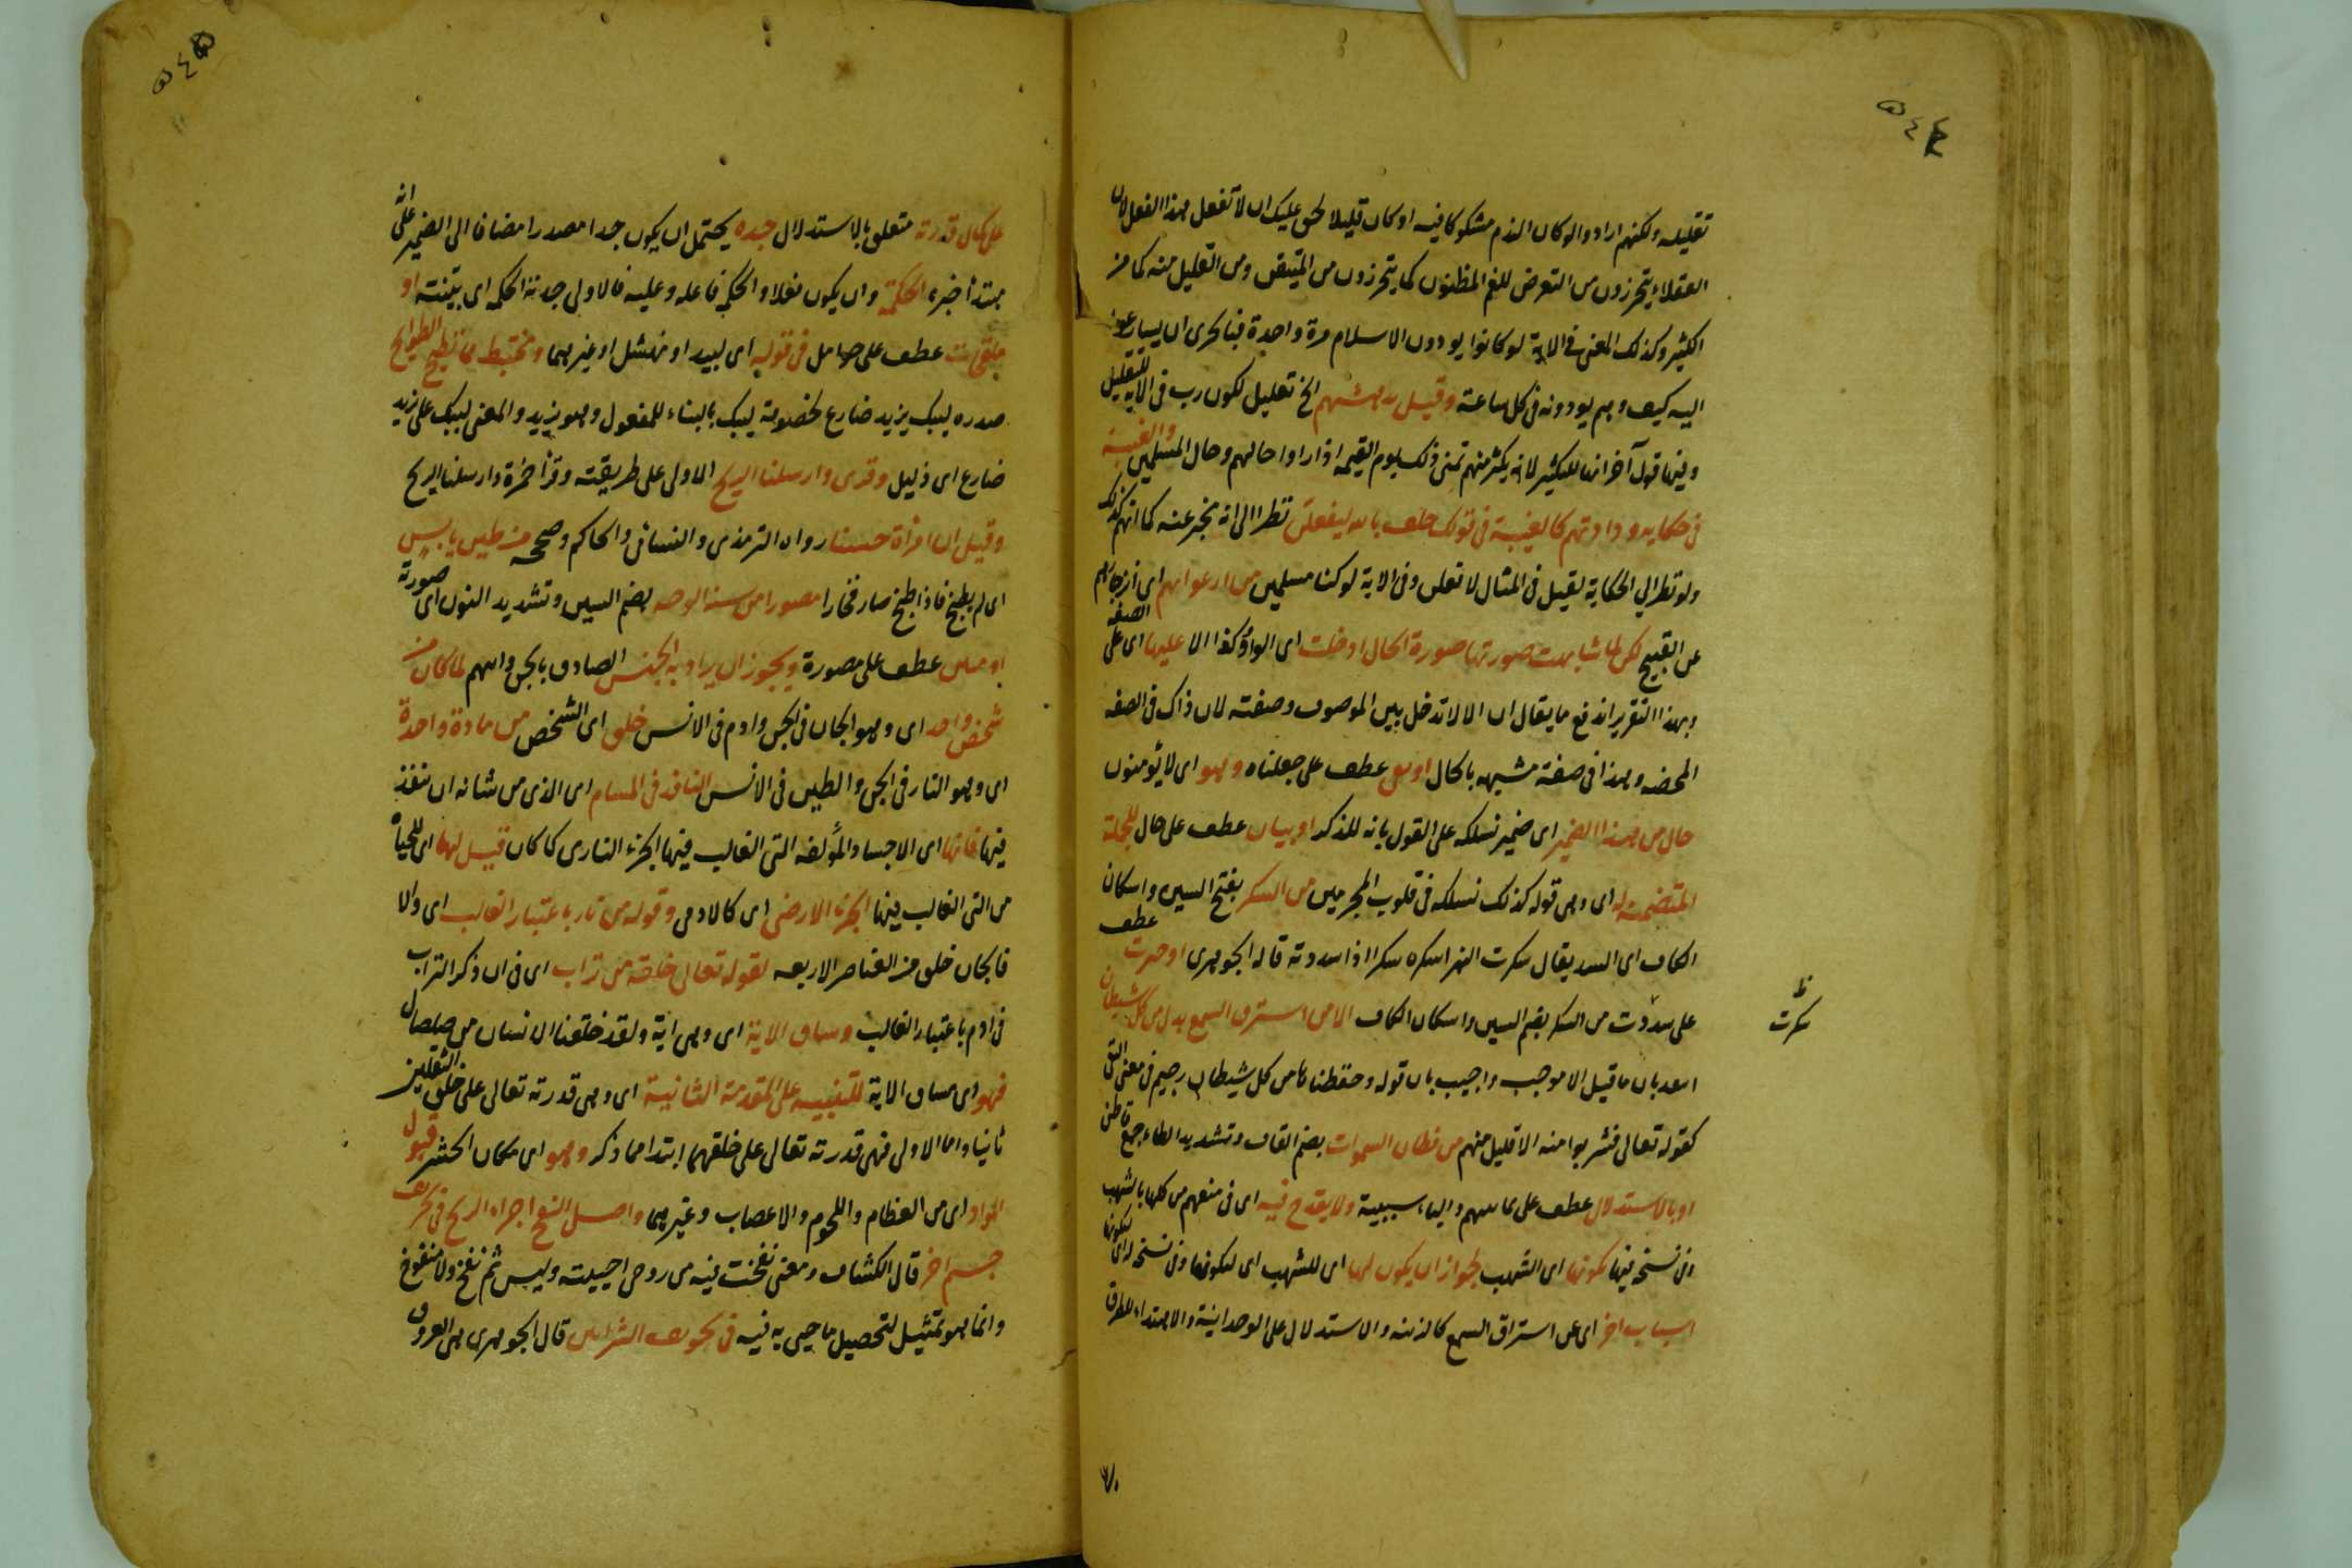 تقليله ولكنهم ارادوا لو كان الندم مشكوكا فيه او كان قليلا لحق عليك ان لا تفعل هذا الفعل لان
العقلاء يتحرزون من التعرض للغم المظنون كما يتحرزون من المتيقن ومن القليل منه كما من
الكثير وكذلك المعنى فى الاية لو كانوا يودون الاسلام مرة واحدة فبالحرى ان يسارعوا
اليه كيف وهم يودونه فى كل ساعة وقيل يدهشهم الخ تعليل لكون رب فى الاية للتقليل
وفيها قول آخر انها للتكثير لانه يكثر منهم تمنى ذلك يوم القيمه اذا راوا حالهم وحال المسلمين والغيبة
فى حكاية ودادتهم كالغيبة فى قولك حلف بالله ليفعلن نظرا الى انه مخبر عنه كما انهم كذلك
ولو نظر الى الحكاية لقيل فى المثال لافعلن وفى الاية لو كنا مسلمين من ارعوائهم اى انزجارهم
عن القبيح لكن لما شابهت صورتها صورة الحال ادخلت اى الواو وكذا الا عليها اى على الصفه
وبهذا التقرير اندفع ما يقال ان الا لا تدخل بين الموصوف وصفته لان ذاك فى الصفه
المحضه وهذا فى صفة مشبهه بالحال او عطف على جعلناه وهو اى لا يؤمنون
حال من هذا الضمير اى ضمير نسلكه على القول بانه للذكر او بيان عطف على حال للجملة
المتضمنة له اى وهى قوله كذلك نسلكه فى قلوب المجرمين من السكر بفتح السين واسكان
الكاف اى السد يقال سكرت النهر اسكره سكرا اذا سددته قاله الجوهرى او حيرت عطف
على سدّت من السكر بضم السين واسكان الكاف الا من استرق السمع بدل من كل شيطان
بان ما قبل الا موجب واجيب بان قوله وحفظناها من كل شيطان رجيم فى معنى النفى
كقوله تعالى فشربوا منه الا قليل منهم من قطان السموات بضم القاف وتشديد الطاء جمع قاطن
او بالاستدلال عطف على والباء سببية ولا يقدح فيه اى فى منعهم من كلها بالشهب
وفى نسخه فيها تكونها اى الشهب لجواز ان يكون لها اى للشهب اى لتكونها وفى نسخه له اى لتكونها
اسباب اخر اى عن استراق السمع كالزينه والاستدلال على الوحدانية والاهتداء للطرق
سكرت ظ
على كمال قدرته متعلق بالاستدلال جده يحتمل ان يكون جدا مصدرا مضافا الى الضمير على انه
مبتدأ خبره الحكمة وان يكون فعلا والحكم فاعله وعليه فالاولى جدته الحكم اى بينته او
ملقحات عطف على حوامل فى قوله اى لبيد او نهشل او غيرهما ومختبط مما تطيح الطوايح
صدره ليبك يزيد ضارع لخصومة ليبك بالبناء للمفعول وهو يزيد والمعنى ليبك على يزيد
ضارع اى ذليل وقرى وارسلنا الريح الاولى على طريقته وقرأ حمزة وارسلنا الريح
وقيل ان امراة حسناء رواه الترمذى والنسائى والحاكم وصححه من طين يابس
اى لم يطبخ فاذا طبخ صار فخارا مصورا من سنة الوجه بضم السين وتشديد النون اى صورته
او عطف على مصورة ويجوز ان يراد به الجنس الصادق بالجن وابيهم لما كان من
شخص واحد اى وهو الجان فى الجن وادم فى الانس خلق اى الشخص من مادة واحدة
اى وهو النار فى الجن والطين فى الانس النافذ فى المسام اى الذى من شانه ان ينفذ
فيها فانها اى الاجساد المؤلفه التى الغالب فيها الجزء النارى كما كان قبل لها اى للحياة
من التى الغالب فيها الجزء الارضى اى كالادمى وقوله من نار باعتبار الغالب اى والا
فالجان خلق من العناصر الاربعه لقوله تعالى خلقه من تراب اى فى ان ذكر التراب
فى ادم باعتبار الغالب ومساق الاية اى وهى اية ولقد خلقنا الانسان من صلصال
فهو اى مساق الاية للتنبيه على المقدمة الثانية اى وهى قدرته تعالى على خلق الثقلين
ثانيا واما الاولى فهى قدرته تعالى على خلقهما ابتداء مما ذكر وهو اى مكان الحشر قبول
المواد اى من العظام واللحوم والاعصاب وغيرهما واصل النفخ اجراء الريح فى تجويف
جسم اخر قال الكشاف ومعنى نفخت فيه من روحى احييته وليس ثم نفخ ولا منفوخ
وانما هو تمثيل لتحصيل ما حيى به فيه فى تجويف الشرايين قال الجوهرى هى العروق